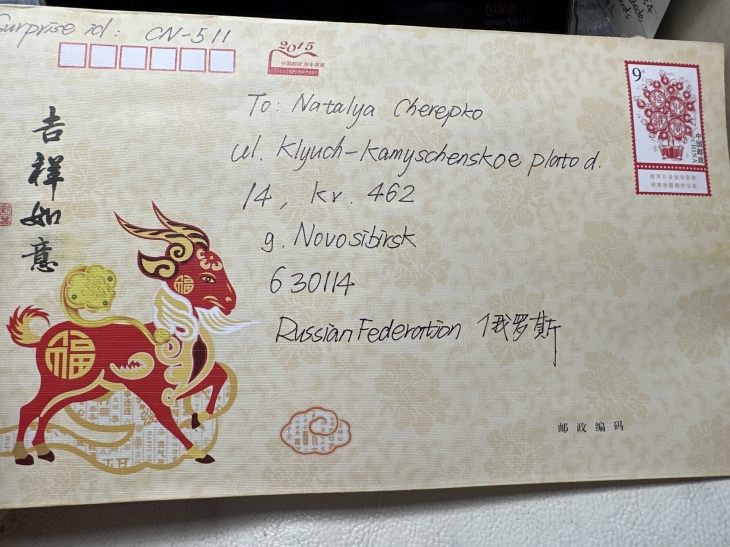 Surprise id: CN-511
2015
To: Natalya Cherepko
ul. Klyuch-Kamyschenskoe plato d.
14, kr. 462
g. Novosibirsk
630114
Russian Federation 俄罗斯
吉祥如意
福
福
9
邮政编码